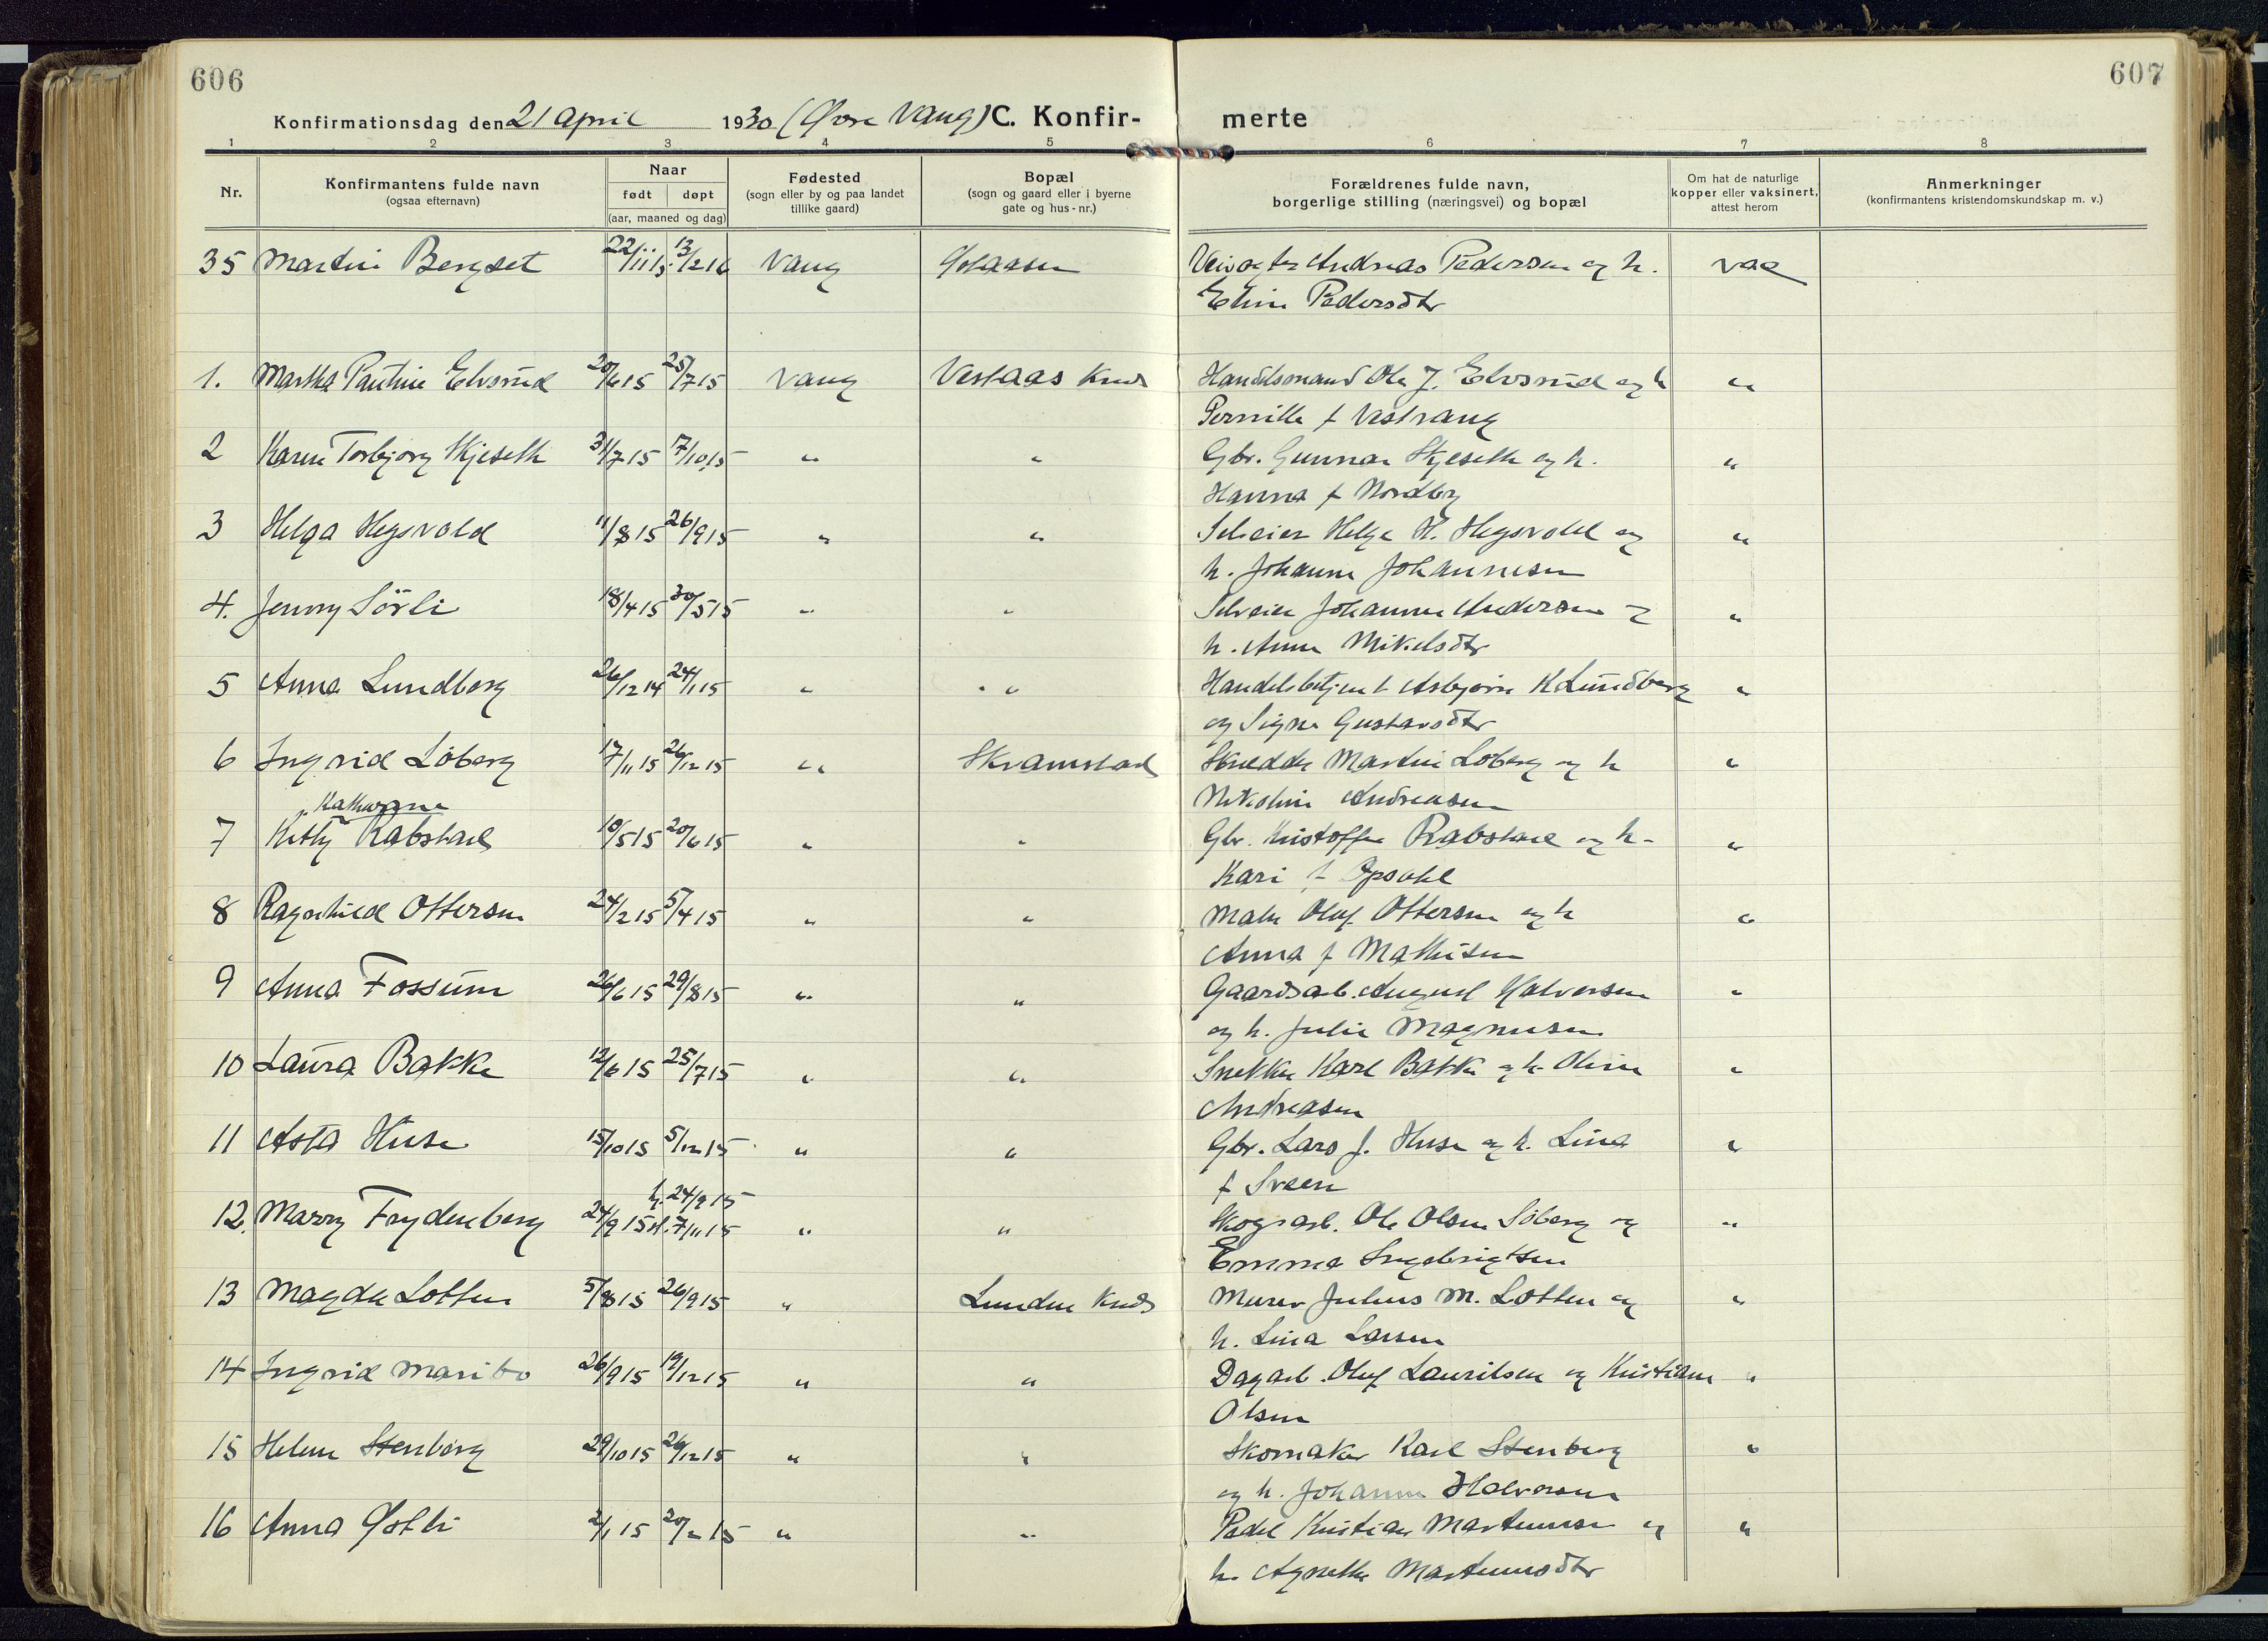 606
607
Konfirmationsdag den 21 april 1930 (Øvre Vang) C. Konfir-
merte
1 2 3 4 5 6 7 8
Nr.
Konfirmantens fulde navn
(ogsaa efternavn)
Naar
født døpt
(aar, maaned og dag)
Fødested
(sogn eller by og paa landet
tillike gaard)
Bopæl
(sogn og gaard eller i byerne
gate og hus-nr.)
Forældrenes fulde navn,
borgerlige stilling (næringsvei) og bopæl
Om hat de naturlige
kopper eller vaksinert,
attest herom
Anmerkninger
(konfirmantens kristendomskundskap m. v.)
35 Martin Bergset 22/11 15 13/2 16 Vang Veivogter Andreas Pedersen og h. vac
Eline Pedersdtr
1. Martha Pauline Elvsrud 20/6 15 25/7 15 Vang Vestaas Handelsmand Ole J. Elvsrud og h "
Pernille f Vestvang
2 Karen Torbjørg Skjeseth 31/7 15 17/10 15 " " Gbr. Gunnar Skjeseth og h. "
Hanna f Nordby
3 Helga Hegsvold 11/8 15 26/9 15 " " Selveier Helge H. Hegsvold og "
h. Johanne Johannesen
4. Jenny Sörli 18/4 15 30/5 15 " " Selveier Johannes Andersen og "
h. Anne Mikelsdtr
5 Anna Lundberg 26/12 14 24/1 15 " " Handelsbetjent Asbjørn K Lundberg "
og Signe Gustavsdtr
6 Ingrid Löberg 17/11 15 26/12 15 " Skramstad Skredder Martin Löberg og h "
Nikoline Andreasen
7 Kitty Rabstad 10/5 15 20/6 15 " " Gbr. Kristoffer Rabstad og h. "
Kari f Opsahl
8 Ragnhild Ottersen 24/2 15 5/4 15 " " Maler Oluf Ottersen og h "
Anna f Mathisen
9 Anna Fossum 26/6 15 29/8 15 " " Gaardsarb. August Halvorsen "
og h. Julie Magnusen
10 Laura Bakke 12/6 15 25/7 15 " " Snekker Karl Bakke og h. Oline "
Andreasen
11 Asta Huse 15/10 15 5/12 15 " " Gbr. Lars J. Huse og h. Lina "
f Sveen
h. 24/9 15
12. Marry Frydenberg 24/9 15 st. 7/11 15 " " Skogsarb. Ole Olsen Söberg og "
Emma Ingebrigtsen
13 Magda Lotten 5/8 15 26/9 15 " Lunden Murer Julius M. Lotten og "
h. Lina Larsen
14 Ingrid Maribo 26/9 15 19/12 15 " " Dagarb. Oluf Lauritsen og Kristiane "
Olsen
15 Helene Stenberg 29/10 15 26/12 15 " " Skomaker Karl Stenberg "
og h. Johanne Halvorsen
16 Anna 2/1 15 20/2 15 " " Kristian Martinusen og "
h. Agnethe Martinusdtr